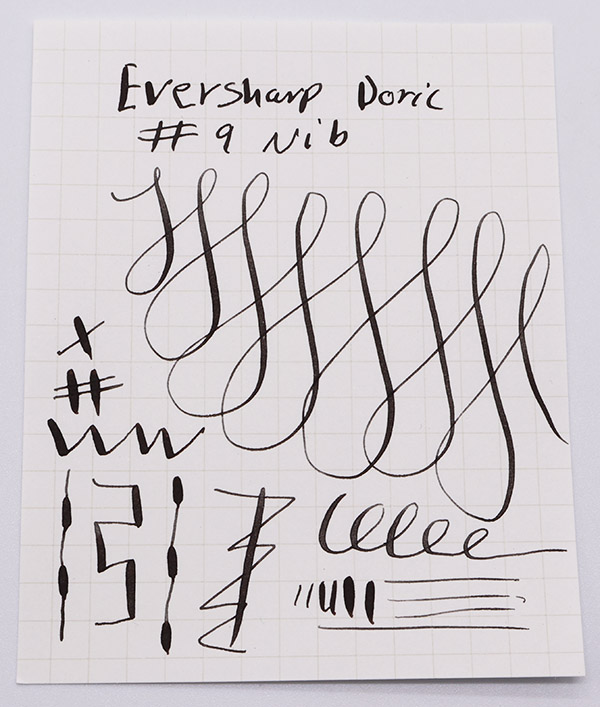 Eversharp Doric
# 9 Nib
x
#